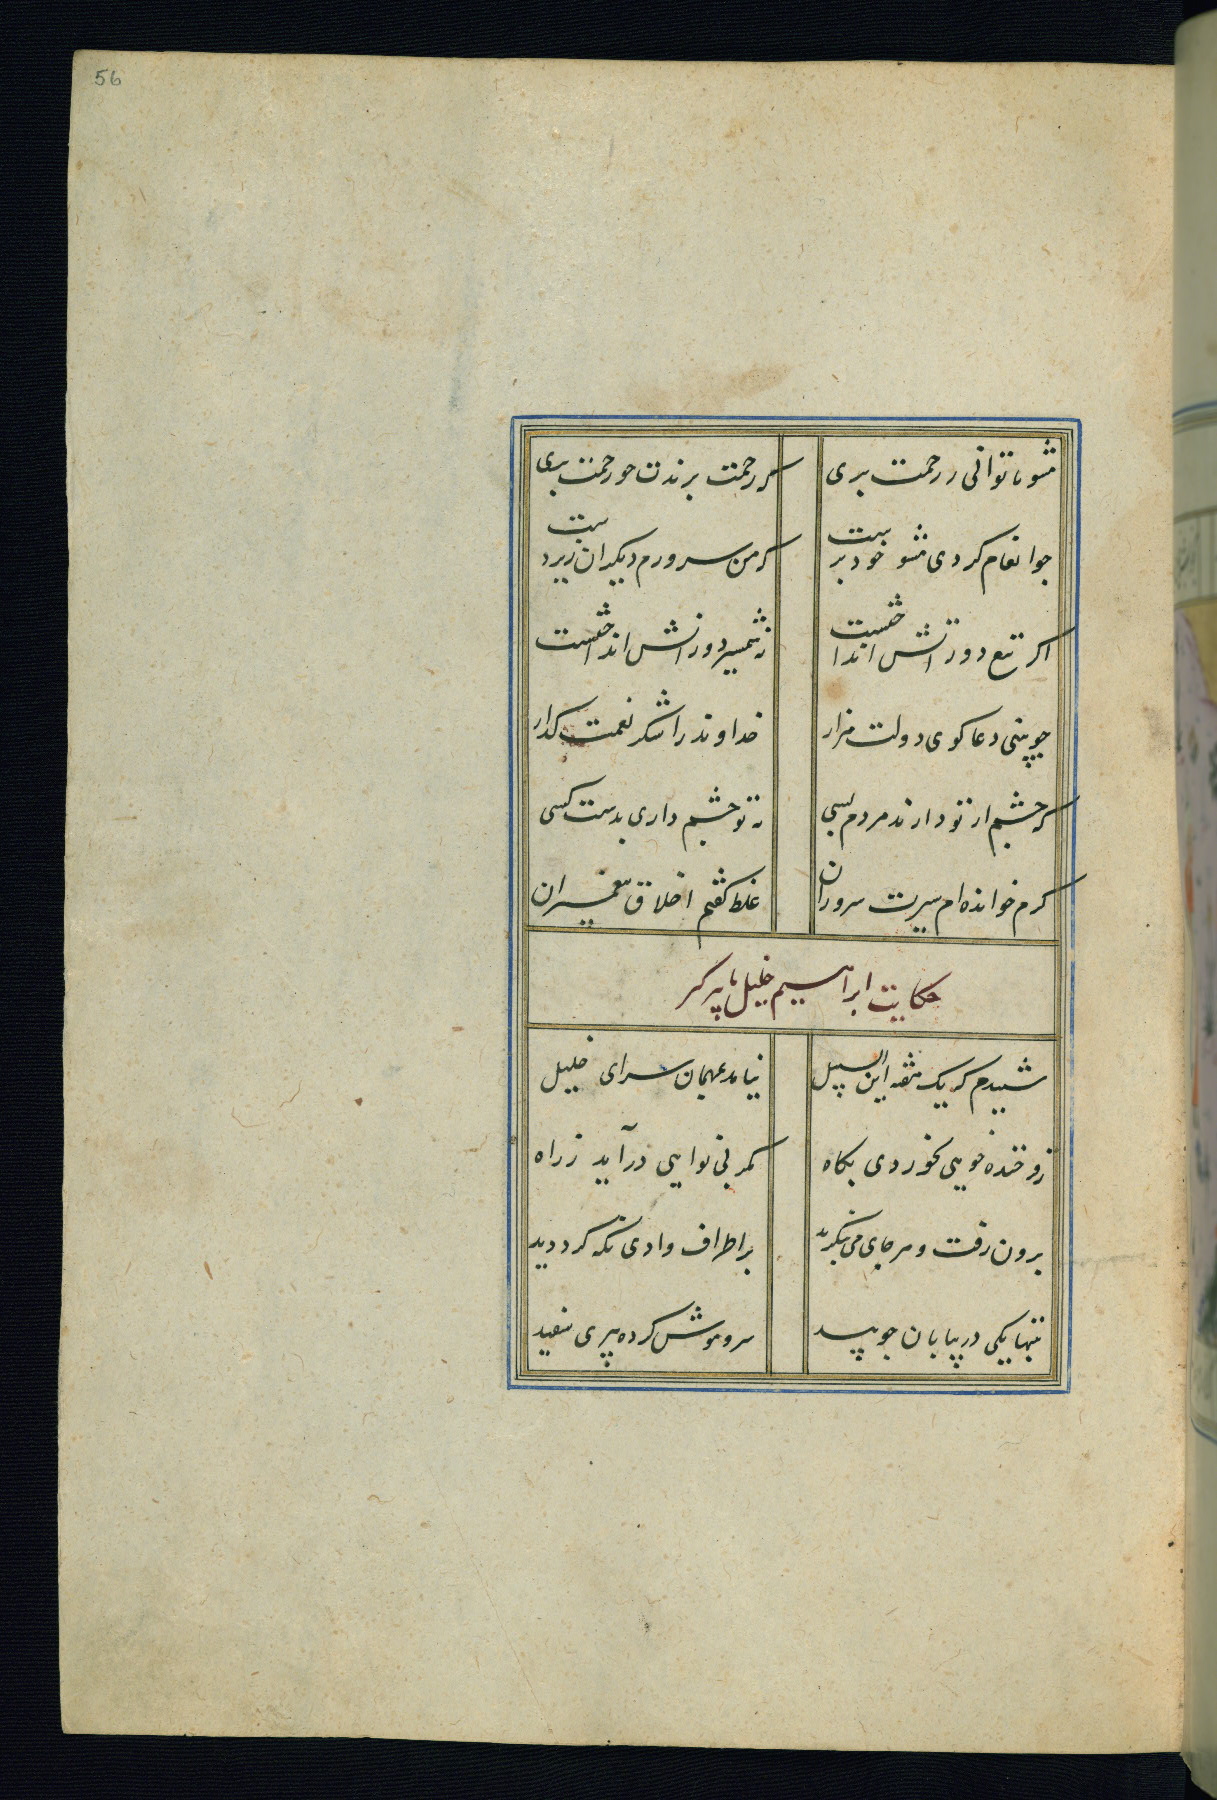 56
مشو تا توانی ز رحمت بری که رحمت برندت چو رحمت بری
چو انعام کردی مشو خودپرست که من سرورم دیگران زیردست
اگر تیغ دورانش انداختست نه شمشیر دورانش انداختست
چو بینی دعاگوی دولت هزار خداوند را شکر نعمت گذار
که چشم از تو دارند مردم بسی نه تو چشم داری بدست کسی
کرم خوانده‌ام سیرت سروران غلط گفتم اخلاق پیغمبران
حکایت ابراهیم خلیل با پیر گبر
شنیدم که یک هفته ابن السبیل نیامد بمهمان سرای خلیل
ز فرخنده خویی نخوردی بگاه مگر بی نوایی درآید ز راه
برون رفت و هر جای می بنگرید بر اطراف وادی نگه کرد و دید
بتنها یکی در بیابان چو بید سر و مویش کرده پیری سفید